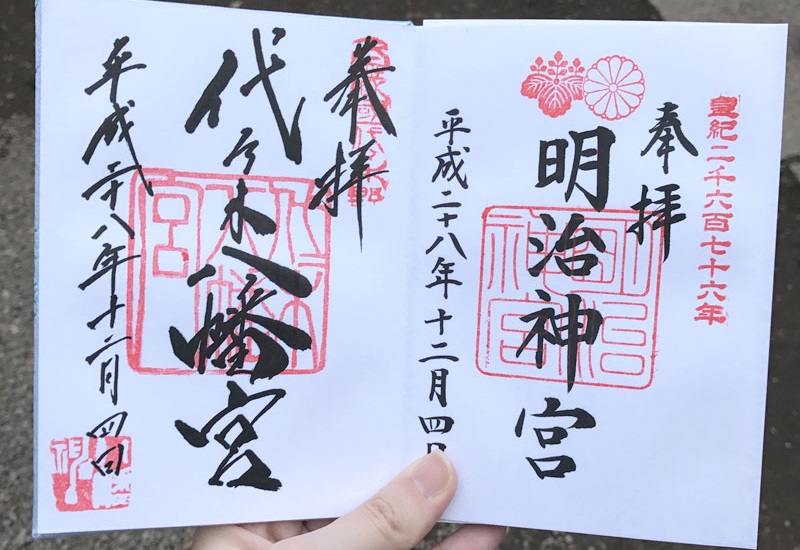 皇紀二千六百七十六年
奉拝
明治神宮
平成二十八年十二月四日
奉拝
代々木八幡宮
平成二十八年十二月四日